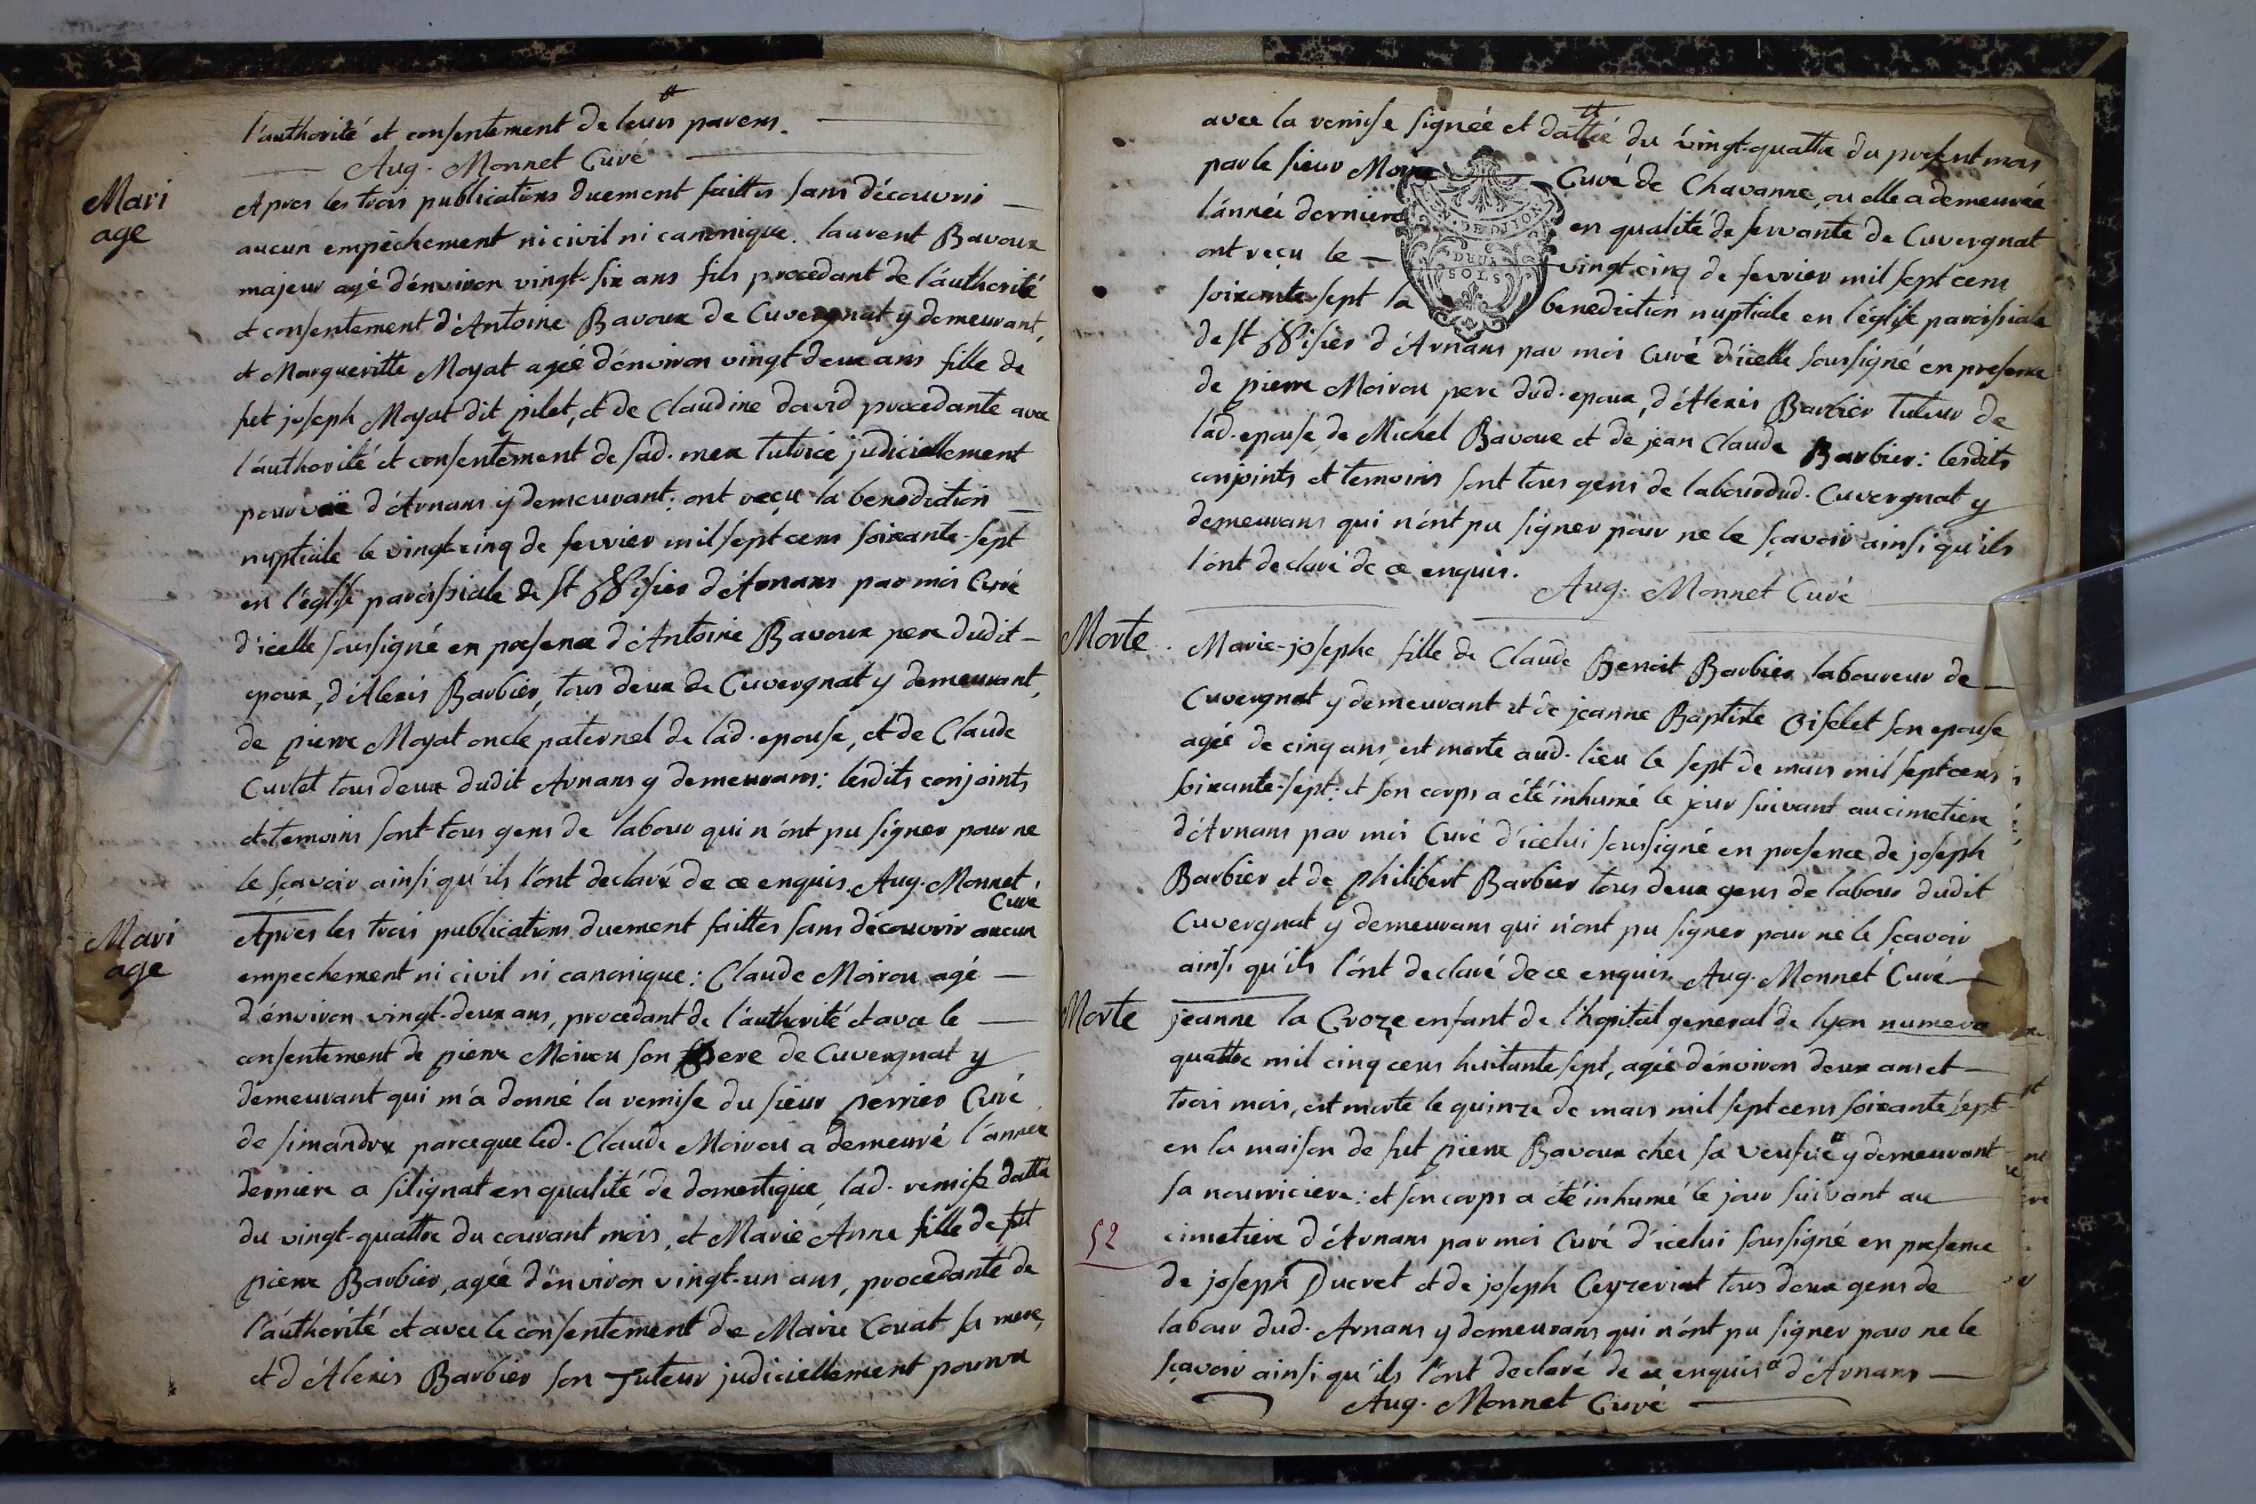 l'authorité et consentement de leurs parens.
Aug. Monnet Curé
Mari
age
Apres les trois publications duement faittes sans découvrir
aucun empêchement ni civil ni canonique. laurent Bavoux
majeur agé d'énviron vingt-six ans fils procedant de l'áuthorité
et consentement d'Antoine Bavoux de Cuvergnat y demeurant,
et Margueritte Moyat agée d'énviron vingt deux ans fille de
fut joseph Moyat dit pilet, et de Claudine david procedante avec
l'áuthorité et consentement de sad. mere tutrice judiciellement
pourvuë d'Arnans y demeurant: ont reçu la benediction
nuptiale le vingt-cinq de fevrier mil sept cens soixante-sept
en l'église paroissiale de st Visier d'Arnans par moi Curé
d'icelle soussigné en presence d'Antoine Bavoux pere dudit
epoux, d'Alexis Barbier, tous deux de Cuvergnat y demeurant,
de pierre Moyat oncle paternel de lad. epouse, et de Claude
Curlet tous deux dudit Arnans y demeurans: lesdits conjoints
et temoins sont tous gens de labour qui n'ónt pu signer pour ne
le sçavoir ainsi qu'ils l'ónt declaré de ce enquis. Aug. Monnet
Curé
Mari
age
Apres les trois publications duement faittes sans découvrir aucun
empechement ni civil ni canonique: Claude Moirou agé
d'énviron vingt-deux ans, procedant de l'áuthorité et avec le
consentement de pierre Moirou son pere de Cuvergnat y
demeurant qui m'á donné la remise du sieur perrier Curé
de simandre parceque led. Claude Moirou a demeuré l'ánnée
derniere a silignat en qualité de domestique, lad. remise datté
du vingt-quattre du courant mois, et Marie Anne fille de fut
pierre Barbier, agée d'énviron vingt-un ans, procedante de
l'áuthorité et avec le consentement de Marie Couat sa mere,
et d'Alexis Barbier son Tuteur judiciellement pourvu
avec la remise signée et dattée du vingt-quattre du present mois
par le sieur Curé de Chavanne, ou elle a demeurée
l'ánnée derniere en qualité de servante de Cuvergnat
ont reçu le vingt cinq de fevrier mil sept cens
soixante-sept la benediction nuptiale en l'église paroissiale
de st Visier d'Arnans par moi Curé d'icelle soussigné en presence
de pierre Moirou pere dud. epoux, d'Alexis Barbier tuteur de
lad. epouse, de Michel Bavoux et de jean Claude Barbier: lesdits
conjoints et temoins sont tous gens de labour dud. Cuvergnat y
demeurans qui n'ónt pu signer pour ne le sçavoir ainsi qu'ils
l'ónt declaré de ce enquis.
Aug. Monnet Curé
Z. DE DIJON
DEUX
SOLS
Morte
Marie-josephe fille de Claude Benoit Barbier laboureur de
Cuvergnat y demeurant et de jeanne Baptiste Oiselet son epouse
agée de cinq ans, est morte aud. lieu le sept de mars mil sept cens
soixante-sept: et son corps a été inhumé le jour suivant au cimetiere
d'Arnans par moi Curé d'icelui soussigné en presence de joseph
Barbier et de philibert Barbier tous deux gens de labour dudit
Cuvergnat y demeurans qui n'ónt pu signer pour ne le sçavoir
ainsi qu'ils l'ónt declaré de ce enquis. Aug. Monnet Curé
Morte
jeanne la Croze enfant de l'hôpital general de lyon numero
quattre mil cinq cens huitante sept, agée d'énviron deux ans et
trois mois, est morte le quinze de mars mil sept cens soixante sept
en la maison de fut pierre Bavoux chez sa veufue y demeurant
sa nourriciere: et son corps a été inhumé le jour suivant au
52
cimetiere d'Arnans par moi Curé d'icelui soussigné en presence
de joseph Ducret et de joseph Ceyzeriat tous deux gens de
labour dud. Arnans y demeurans qui n'ónt pu signer pour ne le
sçavoir ainsi qu'ils l'ónt declaré de ce enquis d'Arnans
Aug. Monnet Curé